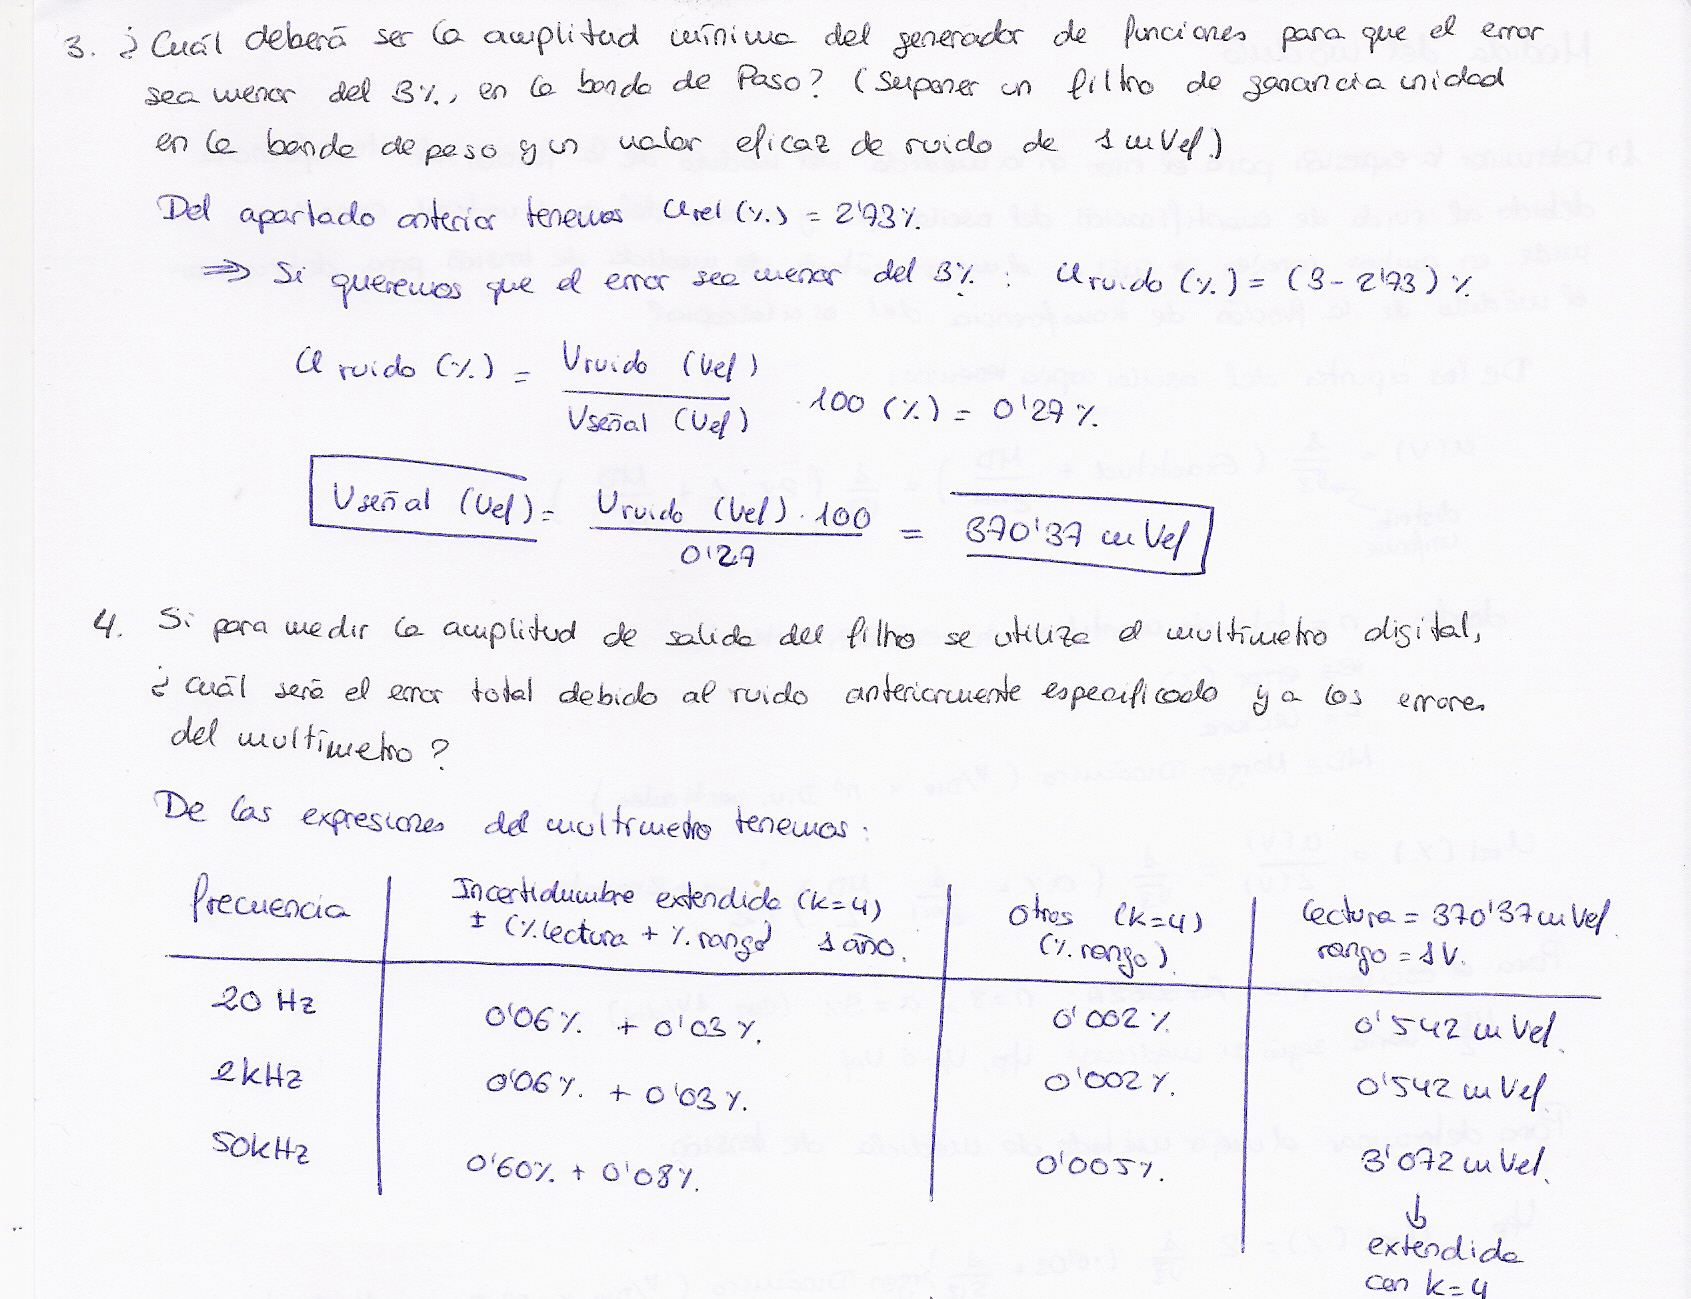 3. ¿Cuál deberá ser la amplitud mínima del generador de funciones para que el error
sea menor del 3%, en la banda de Paso? (Suponer un filtro de ganancia unidad
en la banda de paso y un valor eficaz de ruido de 1 mVef.)
Del apartado anterior tenemos Urel (%) = 2'73%.
⇒ Si queremos que el error sea menor del 3% : Uruido (%) = (3 - 2'73) %
U ruido (%) = Vruido (Vef) / Vseñal (Vef) · 100 (%) = 0'27 %.
Vseñal (Vef) = Vruido (Vef) · 100 / 0'27 = 370'37 mVef
4. Si para medir la amplitud de salida del filtro se utiliza el multímetro digital,
¿cuál será el error total debido al ruido anteriormente especificado y a los errores
del multímetro?
De las expresiones del multímetro tenemos:
Frecuencia | Incertidumbre extendida (k=4) ± (% lectura + % rango) 1 año. | Otros (k=4) (% rango). | Lectura = 370'37 mVef. rango = 1V.
20 Hz | 0'06% + 0'03%. | 0'002% | 0'542 mVef.
2kHz | 0'06%. + 0'03%. | 0'002%. | 0'542 mVef.
50kHz | 0'60% + 0'08%. | 0'005%. | 3'072 mVef.
↓
extendida
con k=4